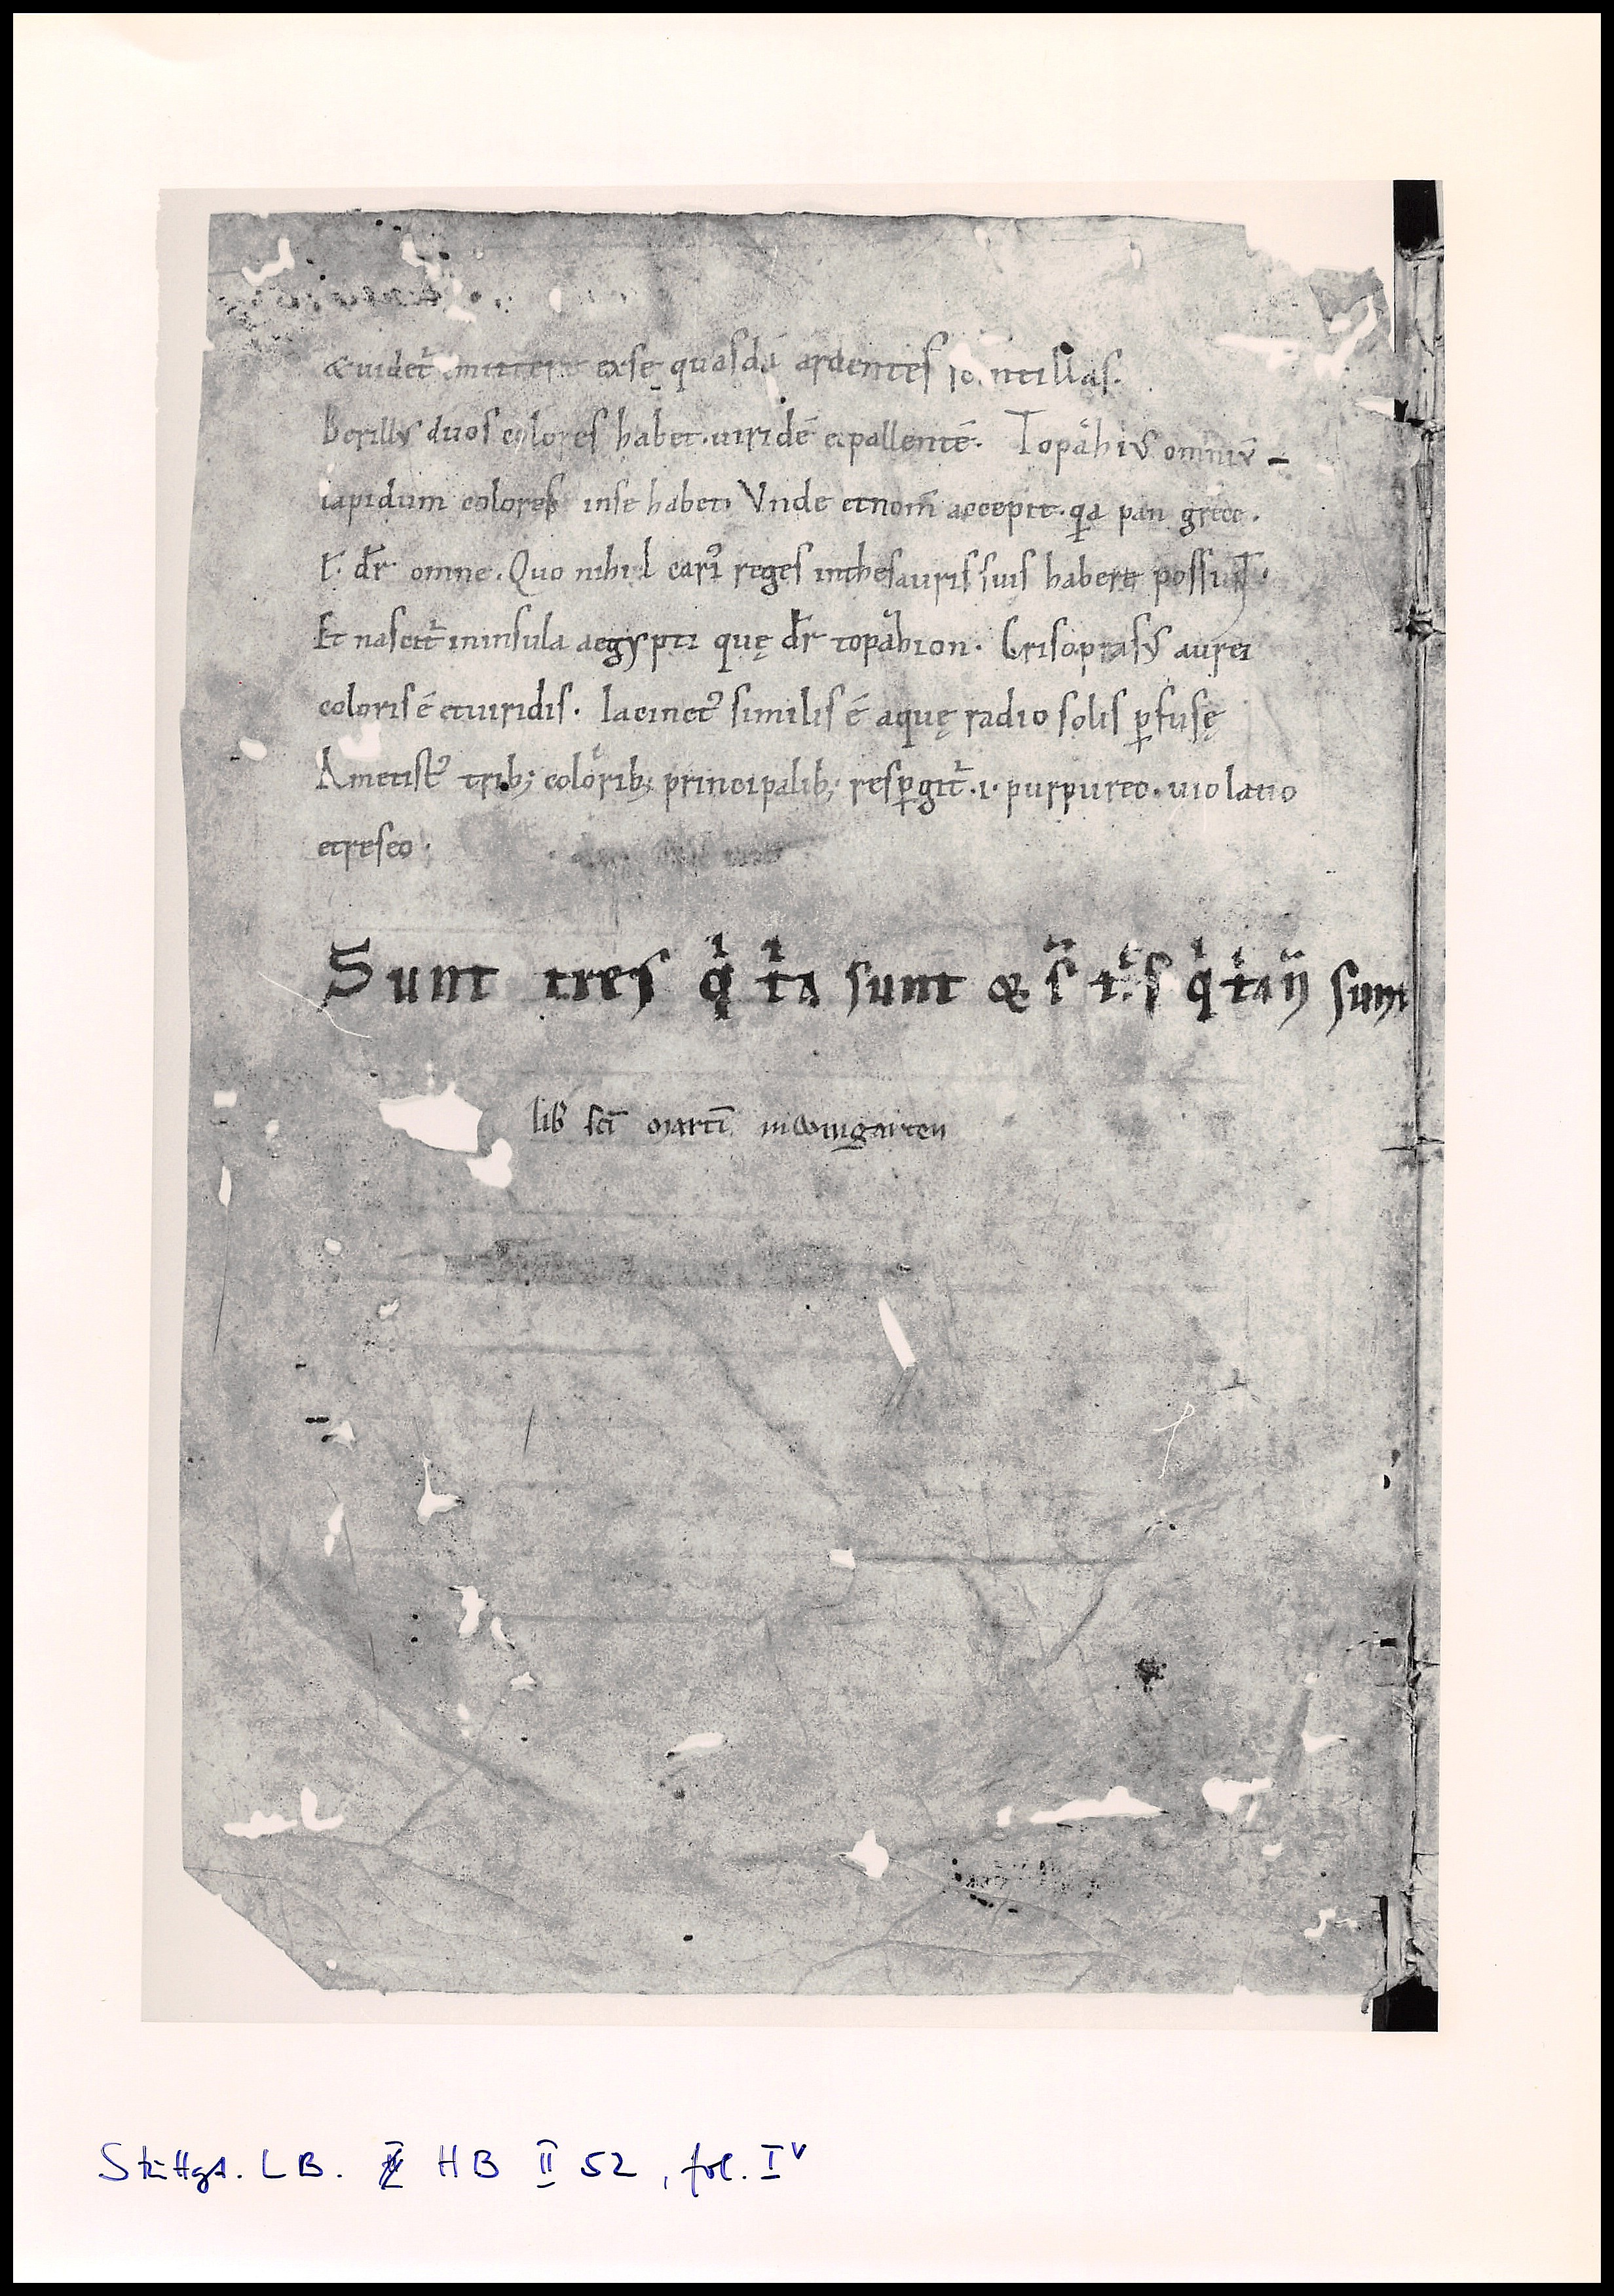 &uidet̄ mittere exsę quasdā ardentes scintillas.
Berillꝰ duos colores habet. uiridē etpallentē. Topahiꝰ omniū
lapidum colores inse habet. Vnde etnom̄ accepit. qͥa pan grece.
dr̄ omne. Quo nihil cariꝰ reges inthesauris suis habere possunt.
Et nascit̄ ininsula aegypti quę dr̄ topahion. Crisoprasꝰ aurei
coloris ē etuiridis. Iacinctꝰ similis ē aquę radio solis ꝑfusę
Ametistꝰ trib; colorib; principalib; resꝑgit̄ .i. purpureo. uiolatio
etroseo.
Sunt tres qͥ tͥa sunt & s̄ t͛s qͥ tͥaij sunt
lib sc̄i martī inwingarten
Stuttgt. LB. HB II 52, fol. Iᵛ